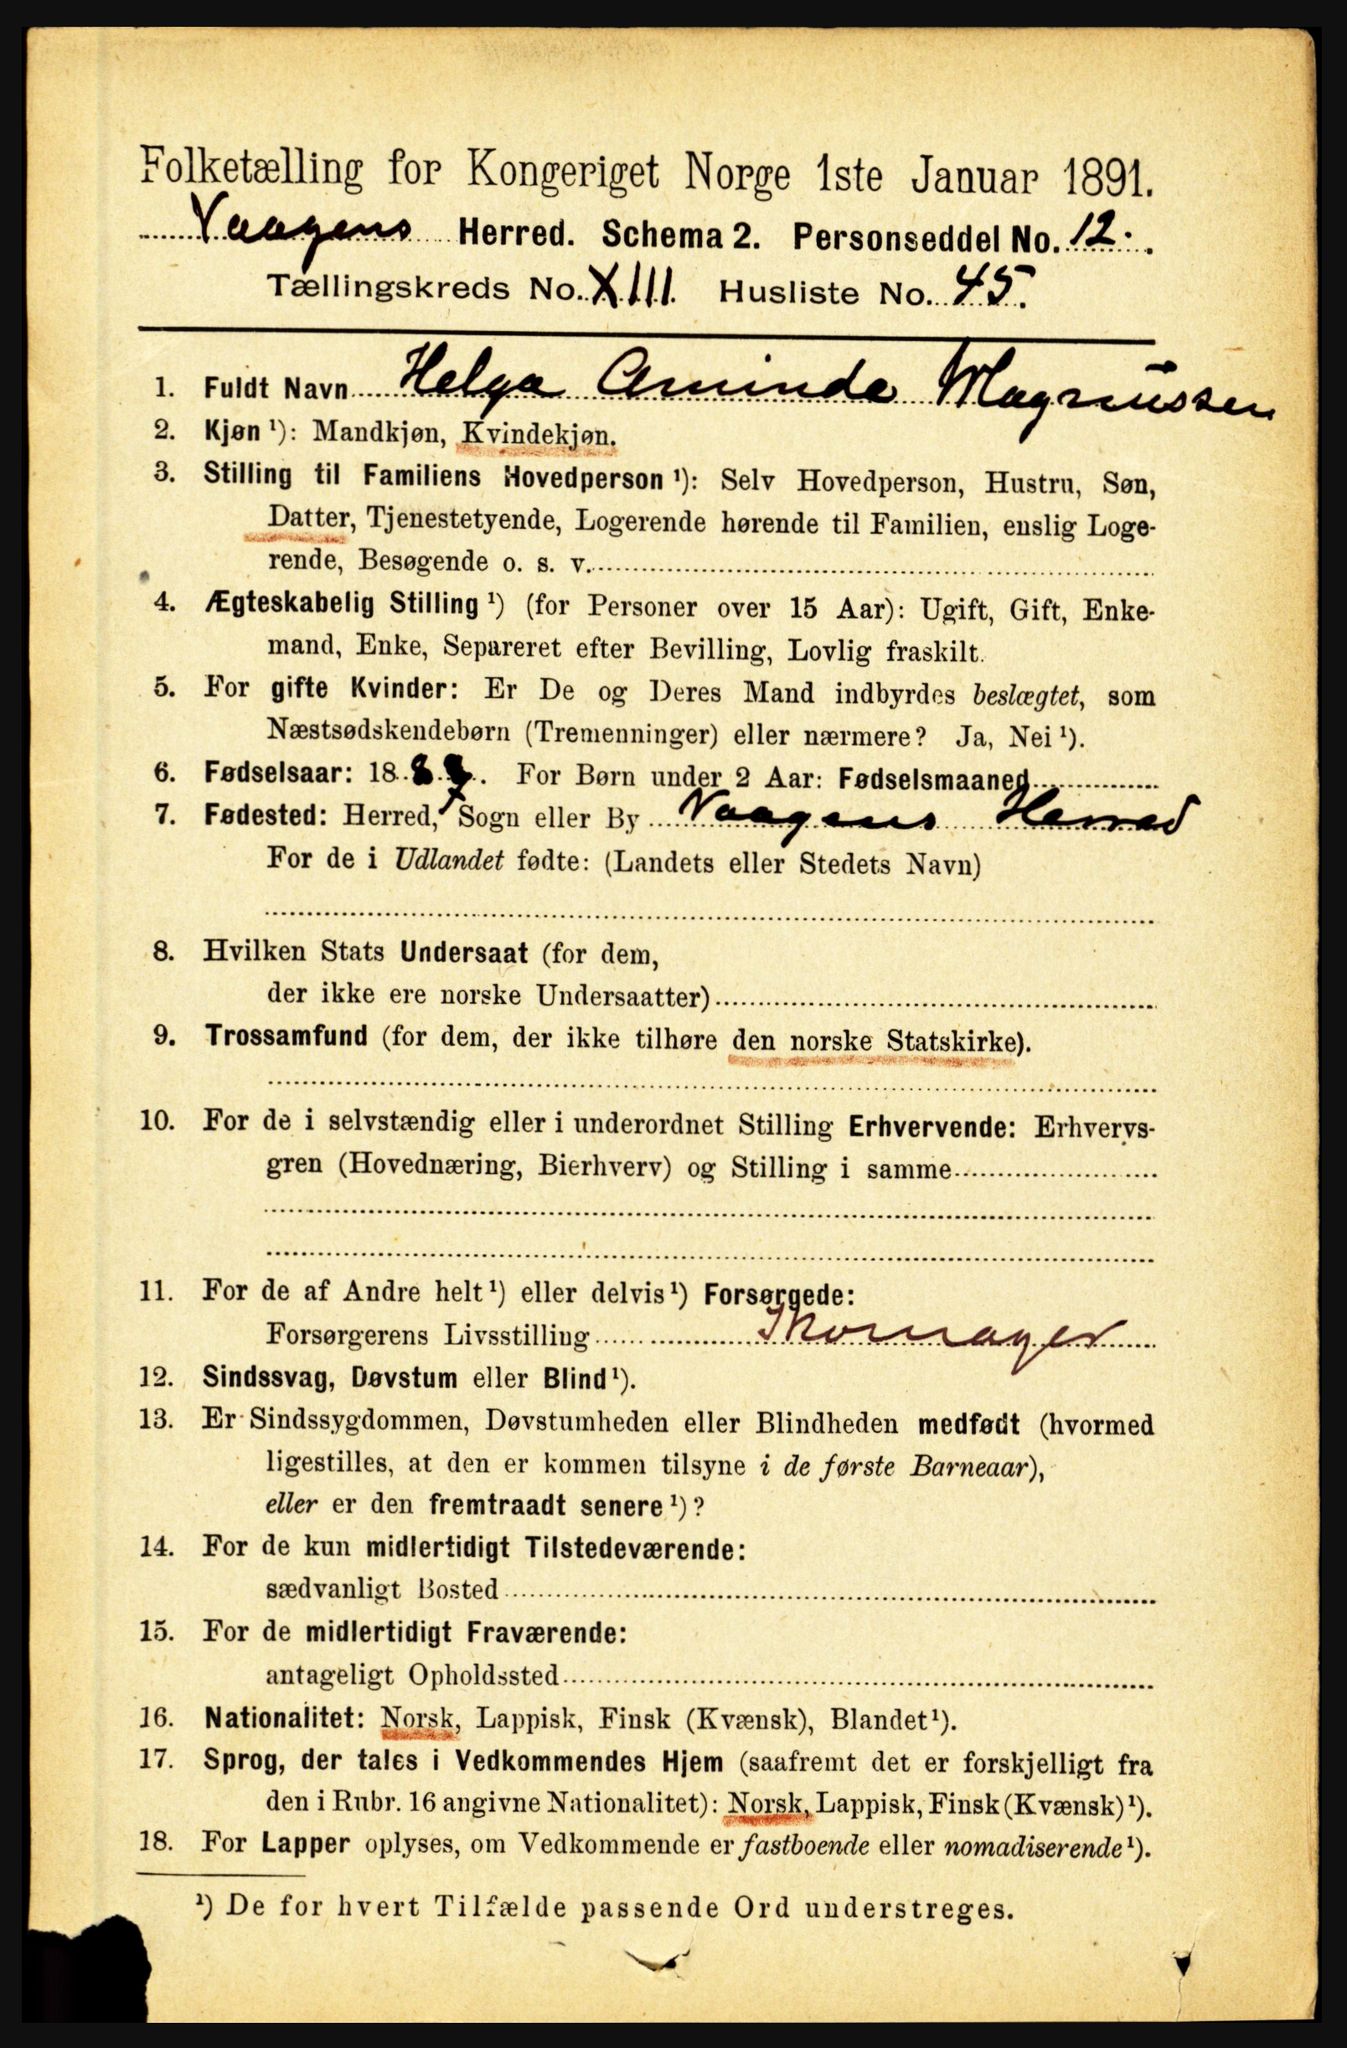 Folketælling for Kongeriget Norge 1ste Januar 1891.
Vaagens Herred. Schema 2. Personseddel No. 12.
Tællingskreds No. XIII. Husliste No. 45.
1. Fuldt Navn Helga Aminda Magnussen
2. Kjøn ¹): Mandkjøn, Kvindekjøn.
3. Stilling til Familiens Hovedperson ¹): Selv Hovedperson, Hustru, Søn,
Datter, Tjenestetyende, Logerende hørende til Familien, enslig Loge-
rende, Besøgende o. s. v.
4. Ægteskabelig Stilling ¹) (for Personer over 15 Aar): Ugift, Gift, Enke-
mand, Enke, Separeret efter Bevilling, Lovlig fraskilt.
5. For gifte Kvinder: Er De og Deres Mand indbyrdes beslægtet, som
Næstsødskendebørn (Tremenninger) eller nærmere? Ja, Nei ¹).
6. Fødselsaar: 18 . For Børn under 2 Aar: Fødselsmaaned
7. Fødested: Herred, Sogn eller By Vaagens Herred
For de i Udlandet fødte: (Landets eller Stedets Navn)
8. Hvilken Stats Undersaat (for dem,
der ikke ere norske Undersaatter)
9. Trossamfund (for dem, der ikke tilhøre den norske Statskirke).
10. For de i selvstændig eller i underordnet Stilling Erhvervende: Erhvervs-
gren (Hovednæring, Bierhverv) og Stilling i samme
11. For de af Andre helt ¹) eller delvis ¹) Forsørgede:
Forsørgerens Livsstilling Skomager
12. Sindssvag, Døvstum eller Blind ¹).
13. Er Sindssygdommen, Døvstumheden eller Blindheden medfødt (hvormed
ligestilles, at den er kommen tilsyne i de første Barneaar),
eller er den fremtraadt senere ¹)?
14. For de kun midlertidigt Tilstedeværende:
sædvanligt Bosted
15. For de midlertidigt Fraværende:
antageligt Opholdssted
16. Nationalitet: Norsk, Lappisk, Finsk (Kvænsk), Blandet ¹).
17. Sprog, der tales i Vedkommendes Hjem (saafremt det er forskjelligt fra
den i Rubr. 16 angivne Nationalitet): Norsk, Lappisk, Finsk (Kvænsk) ¹).
18. For Lapper oplyses, om Vedkommende er fastboende eller nomadiserende ¹).
¹) De for hvert Tilfælde passende Ord understreges.